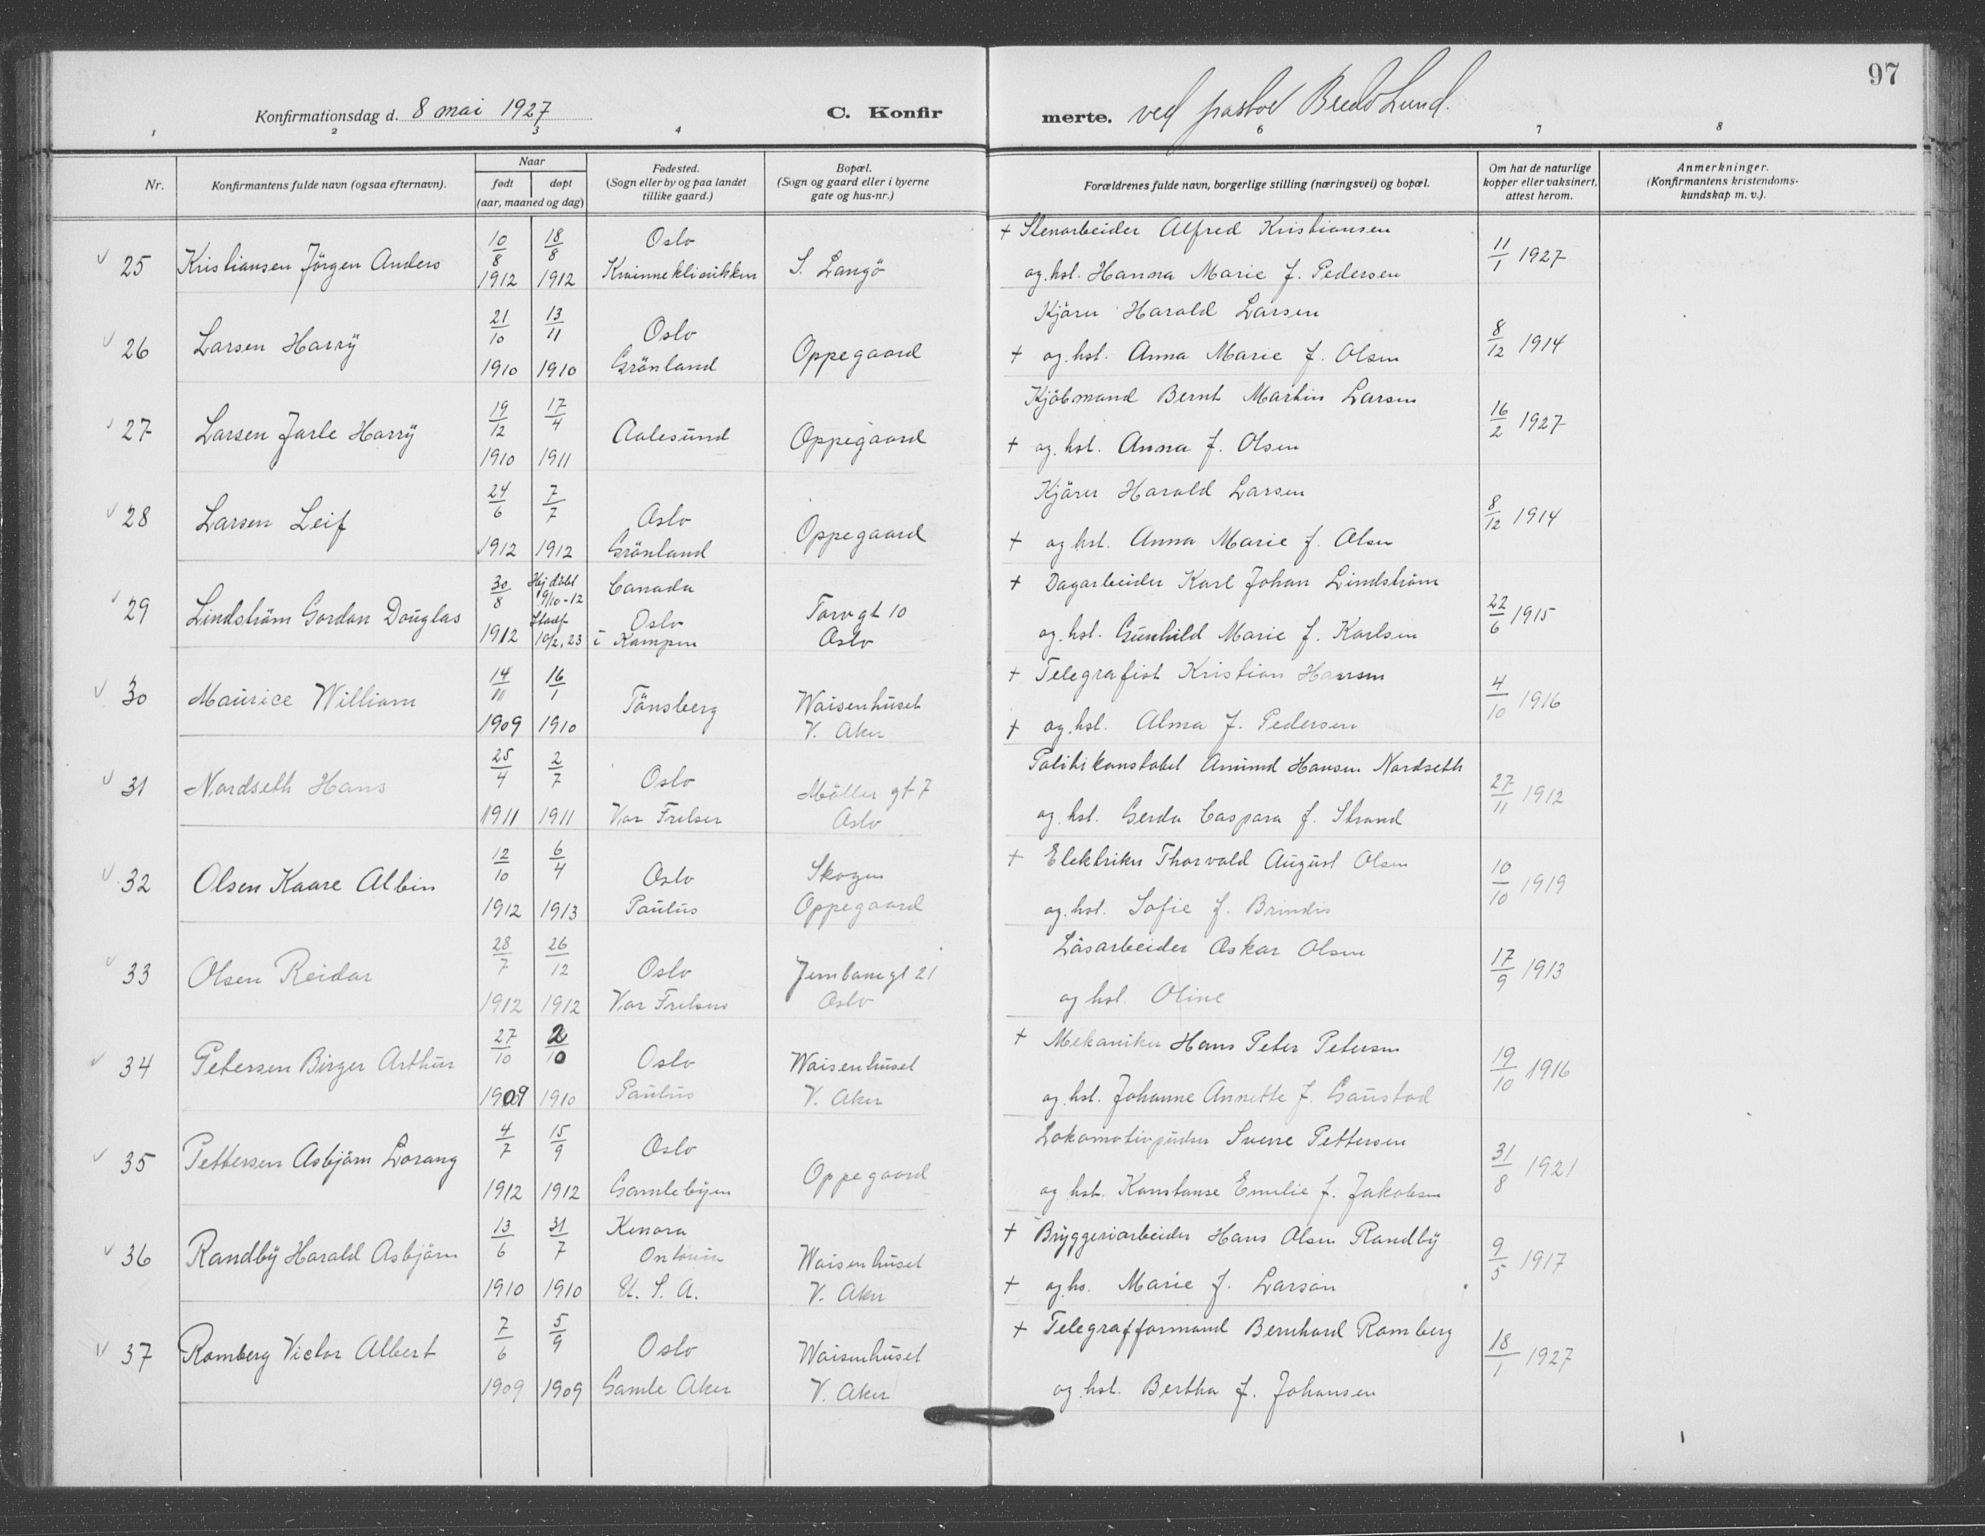 97
Konfirmationsdag d. 8 mai 1927
C. Konfir
merte. ved pastor Lund.
1 2 3 4 6 7 8
Nr.
Konfirmantens fulde navn (ogsaa efternavn).
Naar
født
døpt
(aar, maaned og dag)
Fødested.
(Sogn eller by og paa landet
tillike gaard.)
Bopæl.
(Sogn og gaard eller i byerne
gate og hus-nr.)
Forældrenes fulde navn, borgerlige stilling (næringsvei) og bopæl.
Om hat de naturlige
kopper eller vaksinert,
attest herom.
Anmerkninger.
(Konfirmantens kristendoms-
kundskap m. v.).
25 Kristiansen Jörgen Anders
10/8 1912
18/8 1912
Oslo
Kvinneklinikken
S. Langö
+ Stenarbeider Alfred Kristiansen
og hst. Hanna Marie f. Pedersen
11/1 1927
26 Larsen Harrÿ
21/10 1910
13/11 1910
Oslo
Grönland
Oppegaard
Kjörer Harald Larsen
+ og hst. Anna Marie f. Olsen
8/12 1914
27 Larsen Jarle Harrÿ
19/12 1910
17/4 1911
Aalesund
Oppegaard
Kjöbmand Bernt Martin Larsen
+ og hst. Anna f. Olsen
16/2 1927
28 Larsen Leif
24/6 1912
7/7 1912
Oslo
Grönland
Oppegaard
Kjörer Harald Larsen
+ og hst. Anna Marie f. Olsen
8/12 1914
29 Lindström Gordon Douglas
30/8 1912
Hj döbt
9/10-12
Stadf.
10/2, 23
Canada
Oslo
i Kampen
Torvgt 10
Oslo
+ Dagarbeider Karl Johan Lindström
og hst. Gunhild Marie f. Karlsen
22/6 1915
30 Maurice William
14/11 1909
16/1 1910
Tönsberg
Waisenhuset
V. Aker
+ Telegrafist Kristian Hansen
+ og hst. Alma f. Pedersen
4/10 1916
31 Nordseth Hans
25/4 1911
2/7 1911
Oslo
Vor Frelser
Möller gt 7
Oslo
Politikonstabel Amund Hansen Nordseth
og hst. Gerda Caspara f. Strand
27/11 1912
32 Olsen Kaare Albin
12/10 1912
6/4 1913
Oslo
Paulus
Skogen
Oppegaard
+ Elektriker Thorvald August Olsen
og hst. Sofie f. Brindis
10/10 1919
33 Olsen Reidar
28/7 1912
26/12 1912
Oslo
Vor Frelsers
Jernbanegt 21
Oslo
Läsarbeider Oskar Olsen
og hst. Oline
17/9 1913
34 Petersen Birger Arthur
27/10 1909
2/10 1910
Oslo
Paulus
Waisenhuset
V. Aker
+ Mekaniker Hans Peter Petersen
og hst. Johanne Annette f. Gaustad
19/10 1916
35 Pettersen Asbjörn Lorang
4/7 1912
15/9 1912
Oslo
Gamlebÿen
Oppegaard
Lokomotivpudser Sverre Pettersen
og hst. Konstanse Emilie f. Jakobsen
31/8 1921
36 Randbÿ Harald Asbjörn
13/6 1910
31/7 1910
Kenora
Ontario
U. S. A.
Waisenhuset
V. Aker
+ Brÿggeriarbeider Hans Olsen Randbÿ
+ og hs. Marie f. Larson
9/5 1917
37 Romberg Victor Albert
7/6 1909
5/9 1909
Oslo
Gamle Aker
Waisenhuset
V. Aker
+ Telegrafformand Bernhard Romberg
og hst. Bertha f. Johansen
18/1 1927